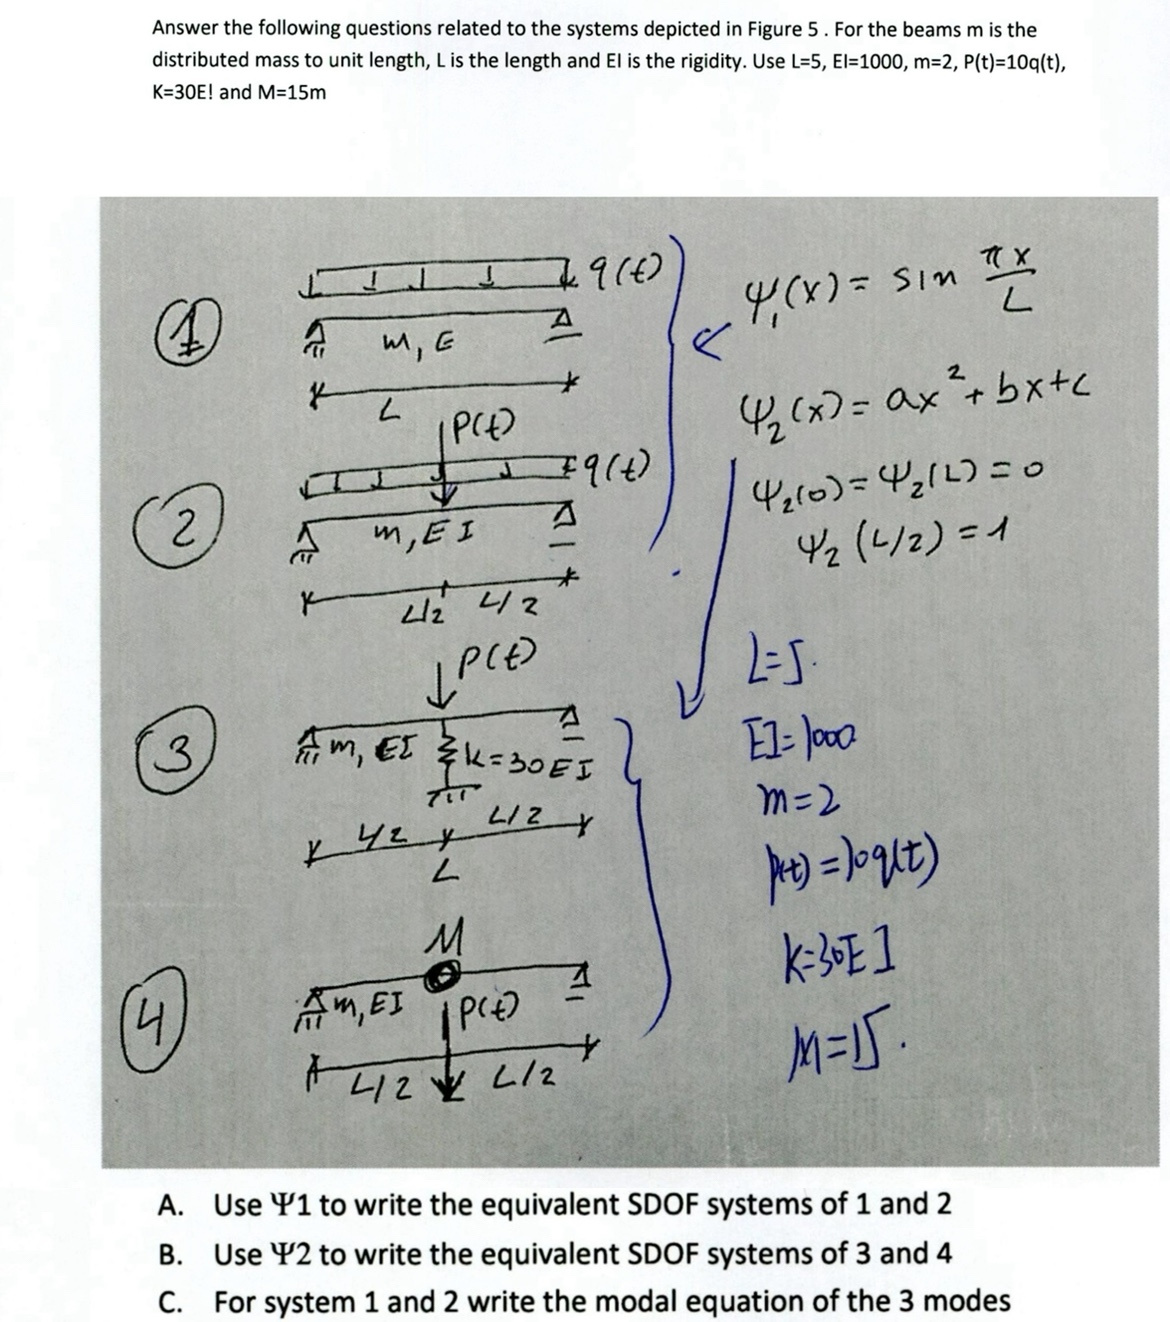 Answer the following questions related to the systems depicted in Figure 5 . For the beams m is the
distributed mass to unit length, L is the length and EI is the rigidity. Use L=5, EI=1000, m=2, P(t)=10q(t),
K=30E! and M=15m
1
q(t)
m, E
L
ψ₁(x) = sin πx/L
2
P(t)
q(t)
m, EI
L/2 L/2
ψ₂(x) = ax² + bx+c
ψ₂(0) = ψ₂(L) = 0
ψ₂ (L/2) = 1
3
P(t)
m, EI
k=30EI
L/2 L/2
L
L=5.
EI=1000
m=2
P(t)=10q(t)
4
M
m, EI
P(t)
L/2 L/2
K=30EI
M=15.
A. Use Ψ1 to write the equivalent SDOF systems of 1 and 2
B. Use Ψ2 to write the equivalent SDOF systems of 3 and 4
C. For system 1 and 2 write the modal equation of the 3 modes